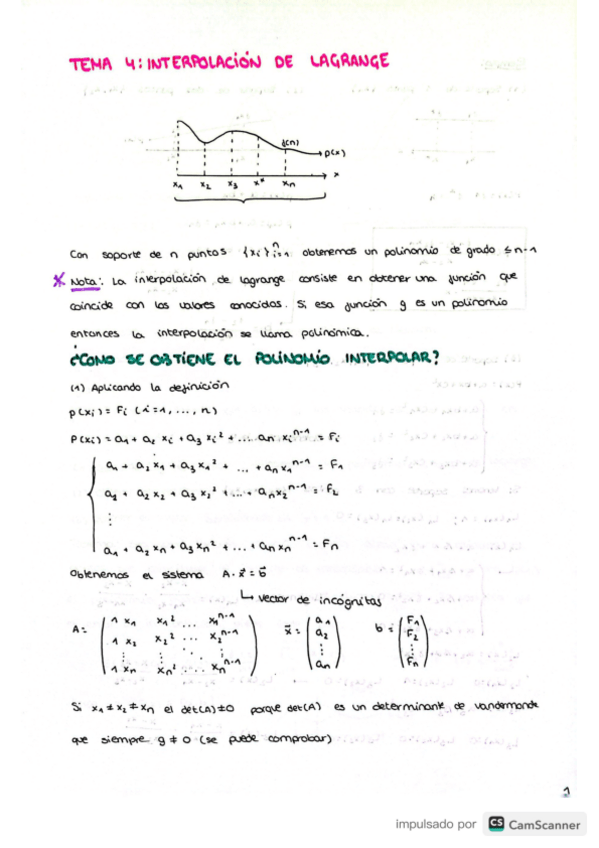 TEMA 4: INTERPOLACIÓN DE LAGRANGE
f(n)
p(x)
x₁ x₂ x₃ x* xₙ x
Con soporte de n puntos {xᵢ}ⁿᵢ₌₁ obtenemos un polinomio de grado ≤ n-1
* Nota: La interpolación de lagrange consiste en obtener una función que
coincide con los valores conocidos. Si esa función g es un polinomio
entonces la interpolación se llama polinómica.
¿COMO SE OBTIENE EL POLINOMIO INTERPOLAR?
(1) Aplicando la definición
p(xᵢ) = Fᵢ (i=1, ..., n)
P(xᵢ) = a₁ + a₂ xᵢ + a₃ xᵢ² + ... aₙ xᵢⁿ⁻¹ = Fᵢ
a₁ + a₂ x₁ + a₃ x₁² + ... + aₙ x₁ⁿ⁻¹ = F₁
a₁ + a₂ x₂ + a₃ x₂² + ... + aₙ x₂ⁿ⁻¹ = F₂
⋮
a₁ + a₂ xₙ + a₃ xₙ² + ... + aₙ xₙⁿ⁻¹ = Fₙ
Obtenemos el sistema A · x⃗ = b⃗
↳ vector de incógnitas
A = ( 1 x₁ x₁² ... x₁ⁿ⁻¹ x⃗ = ( a₁ b = ( F₁
1 x₂ x₂² ... x₂ⁿ⁻¹ a₂ F₂
⋮ ⋮ ⋮ ⋱ ⋮ ⋮ ⋮
1 xₙ xₙ² ... xₙⁿ⁻¹ ) aₙ ) Fₙ )
Si x₁ ≠ x₂ ≠ xₙ el det(A) ≠ 0 porque det(A) es un determinante de vandermonde
que siempre g ≠ 0 (se puede comprobar)
1
impulsado por CS CamScanner